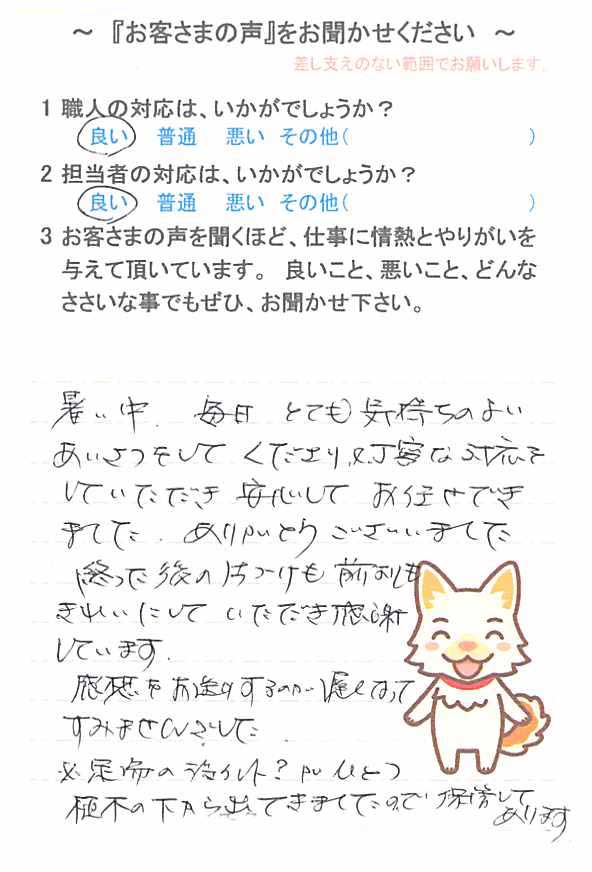 ～ 『お客さまの声』をお聞かせください ～
差し支えのない範囲でお願いします。
1 職人の対応は、いかがでしょうか？
良い 普通 悪い その他( )
2 担当者の対応は、いかがでしょうか？
良い 普通 悪い その他( )
3 お客さまの声を聞くほど、仕事に情熱とやりがいを
与えて頂いています。 良いこと、悪いこと、どんな
ささいな事でもぜひ、お聞かせ下さい。
暑い中、毎日 とても気持ちのよい
あいさつをして くださり、丁寧な対応を
していただき 安心して お任せでき
ました。ありがとうございました
終った後の片づけも 前よりも
きれいにして いただき感謝
しています。
感想をお送りするのが遅くなって
すみませんでした
※足場の ジョイント？がひとつ
植木の下から出てきましたので 保管して
あります